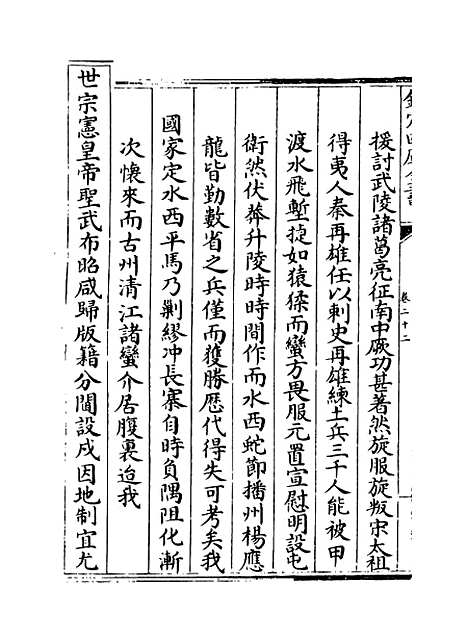 援討武陵諸葛亮征南中厥功甚著然旋服旋叛宋太祖
得夷人秦再雄任以刺史再雄練土兵三千人能被甲
渡水飛塹捷如猿猱而蠻方畏服元置宣慰明設屯
衛然伏莽升陵時時間作而水西蛇節播州楊應
龍皆勤數省之兵僅而獲勝歷代得失可考矣我
國家定水西平馬乃剿繆冲長寨自時負隅阻化漸
次懷來而古州清江諸蠻介居腹裏迨我
世宗憲皇帝聖武布昭咸歸版籍分閫設戍因地制宜尤
卷二十二